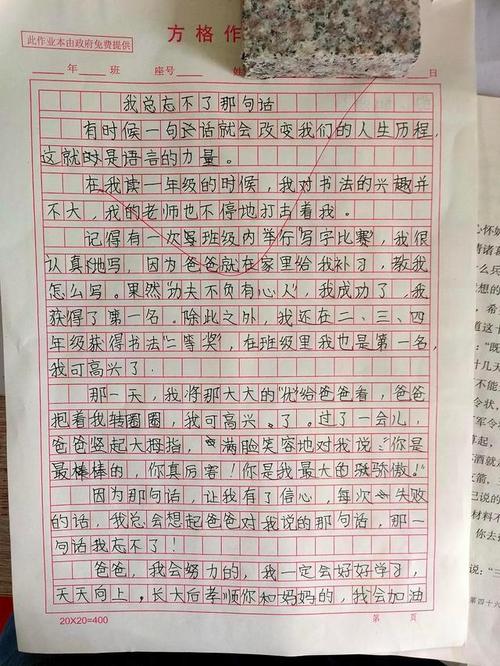 此作业本由政府免费提供
方格作
年 班 座号 姓 日
我总忘不了那句话
有时候一句话就会改变我们的人生历程,
这就是语言的力量。
在我读一年级的时候,我对书法的兴趣并
不大,我的老师也不停地打击着我。
记得有一次班级内举行"写字比赛",我很
认真地写,因为爸爸就在家里给我补习,教我
怎么写。果然"功夫不负有心人",我成功了,我
获得了第一名。除此之外,我还在二、三、四
年级获得书法"二等奖",在班级里我也是第一名,
我可高兴了。
那一天,我将那大大的"优"给爸爸看,爸爸
抱着我转圈圈,我可高兴了。过了一会儿,
爸爸竖起大拇指,满脸笑容地对我说:"你是
最棒棒的,你真厉害!你是我最大的骄傲!"
因为那句话,让我有了信心,每次失败
的话,我总会想起爸爸对我说的那句话,那一
句话我忘不了!
爸爸,我会努力的,我一定会好好学习,
天天向上,长大后孝顺你和妈妈的,我会加油
20X20=400
第 页
心怀
情诸
么兵
想的
,希
道这
:"既
十几天
不能
令状,
军令
酒就
文箭、
已说的
材料不
你去
说:"三
第四十六